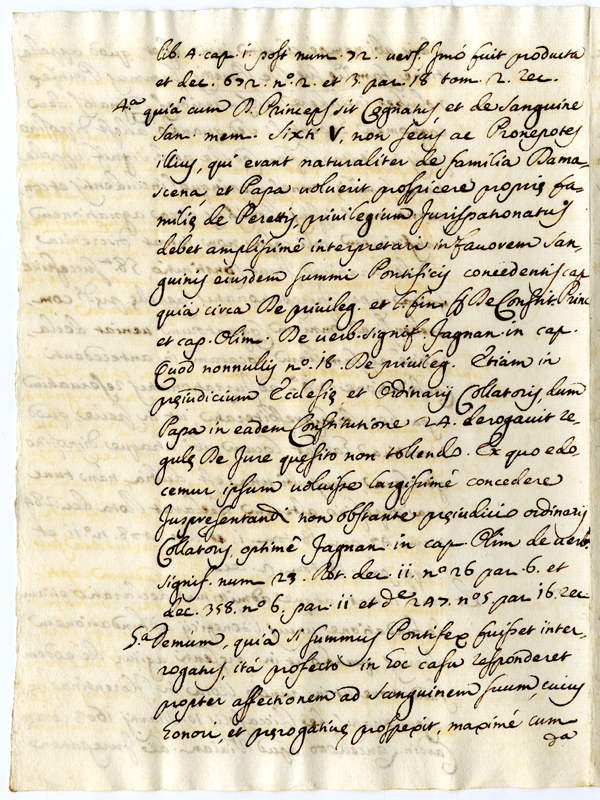 lib. 4. cap. i. post num. 72. vers. Imó fuit producta
et dec. 672. n.º 2. et 3. par. 18 tom. 2. rec.
4.ª quia cum D. Princeps sit Cognatus et de sanguine
San. mem. Sixti V, non secùs ac Pronepotes
illius, qui erant naturaliter de familia Dama-
scena, et Papa voluerit prospicere proprię fa-
milię de Perettis, privilegium Jurispatronatus
debet amplissimé interpretari in favorem San-
guinis eiusdem summi Pontificis concedentis cap
quia circa De privileg. et l. fin. ff. De Constit. Princ
et cap. Olim. De verb. signif. Fagnan. in cap.
Quod nonnullis n.º 18. De privileg. Etiam in
pręiudicium Ecclesię et Ordinarij Collatoris, dum
Papa in eadem Constitutione 24. derogavit re-
gulę De Jure quęsito non tollendo. Ex quo edo
cemur ipsum voluisse largissimé concedere
Juspresentandi non obstante pręiudicio ordinarij
Collatoris, optimé Fagnan. in cap. Olim de verb.
signif. num. 23. Rot. dec. ii. nº 26 par. 6. et
dec. 358. nº 6. par. ii et dec. 247. nº 5. par. 16. rec
5.ª Demum, quia si summus Pontifex fuisset inter-
rogatus, itá profectò in hoc casu responderet
propter affectionem ad sanguinem suum, cuius
honori, et pręrogativę prospexit, maximé cum
da